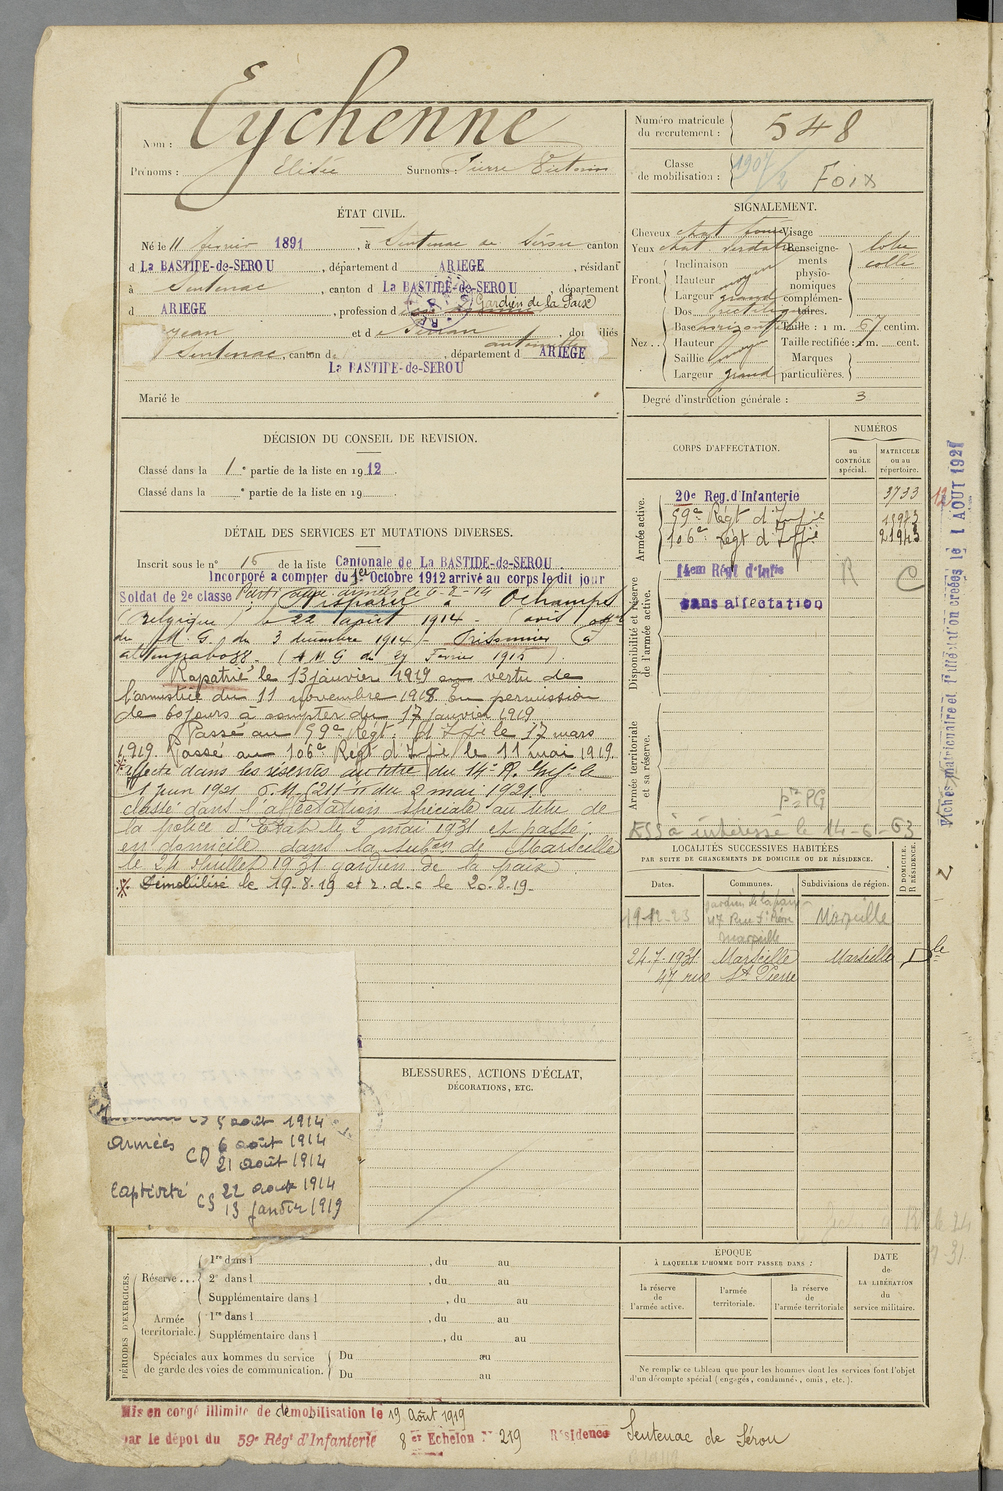 Nom : Eychenne
Prénoms : Elisée Surnoms : Pierre Victorin
Numéro matricule
du recrutement : 548
Classe
de mobilisation : 1907/2 Foix
ÉTAT CIVIL.
Né le 11 février 1891, à Sentenac de Sérou canton
d La BASTIDE-de-SEROU, département d ARIEGE, résidant
à Sentenac, canton d La BASTIDE-de-SEROU, département
d ARIEGE, profession d Gardien de la Paix
Jean et d e
Sentenac, canton d , département d ARIEGE
La BASTIDE-de-SEROU
Marié le
SIGNALEMENT.
Cheveux chat Visage
Yeux chat verdâtre Renseigne-
ments
physio-
nomiques
complémen-
taires.
lobe
collé
Front.
Inclinaison
Hauteur moyen
Largeur grand
Nez...
Dos rectiligne
Base horizontale
Hauteur moy
Saillie
Largeur grand
Taille : 1 m. 67 centim.
Taille rectifiée : 1 m. cent.
Marques
particulières.
Degré d'instruction générale : 3
DÉCISION DU CONSEIL DE REVISION.
Classé dans la 1e partie de la liste en 1912.
Classé dans la e partie de la liste en 19 .
DÉTAIL DES SERVICES ET MUTATIONS DIVERSES.
Inscrit sous le n° 16 de la liste Cantonale de La BASTIDE-de-SEROU
Incorporé a compter du 1er Octobre 1912 arrivé au corps le dit jour
Soldat de 2e classe Parti aux armées le 6-8-14 Disparu à Ochamps
(Belgique) le 22 août 1914 - (avis off.el
du M. G. du 3 décembre 1914) - Prisonnier à
(A M G du 27 Février 1915)
Rapatrié le 13 janvier 1919 en vertu de
l'armistice du 11 novembre 1918. En permission
de 60 jours à compter du 17 janvier 1919
Passé au 59e Régt. d'Inf.ie le 17 mars
1919. Passé au 106e Régt d'Inf.ie le 11 mai 1919.
Affecté dans les réserves au titre du 14e R. Inf. le
1 juin 1921
classé dans l'affectation spéciale au titre de
la police d'Etat le 2 mai 1931 et passe
en domicile dans la Subon de Marseille
le 24 Juillet 1931 gardien de la paix
Démobilisé le 19.8.19 et r.d.c le 20.8.19.
CORPS D'AFFECTATION.
NUMÉROS
au
CONTRÔLE
spécial.
MATRICULE
ou au
répertoire.
Armée active.
20e Reg. d'Infanterie 3733
59e Régt d'Inf.ie 15973
106e Régt d'Inf.ie 21943
Disponibilité et réserve
de l'armée active.
14em Régt d'Infie R C
sans affectation
Armée territoriale
et sa réserve.
PG
ESS à intéressé le 14-6-63
Fiches matriculaire et d'affectation créées le 1 AOUT 1927
LOCALITÉS SUCCESSIVES HABITÉES
PAR SUITE DE CHANGEMENTS DE DOMICILE OU DE RÉSIDENCE.
Dates. Communes. Subdivisions de région. D DOMICILE. R RÉSIDENCE.
19-12-23 gardien de la paix
47 Rue St Pierre
Marseille Marseille
24-7-1931 Marseille Marseille Dle
47 rue St Pierre
BLESSURES, ACTIONS D'ÉCLAT,
DÉCORATIONS, ETC.
CS 5 août 1914
Armées CD 6 août 1914
21 août 1914
Captivité CS 22 août 1914
13 janvier 1919
PÉRIODES D'EXERCICES.
Réserve...
1re dans l , du au
2e dans l , du au
Supplémentaire dans l , du au
Armée
territoriale.
1re dans l , du au
Supplémentaire dans l , du au
Spéciales aux hommes du service
de garde des voies de communication.
Du au
Du au
ÉPOQUE
À LAQUELLE L'HOMME DOIT PASSER DANS :
la réserve
de
l'armée active.
l'armée
territoriale.
la réserve
de
l'armée territoriale
DATE
de
LA LIBÉRATION
du
service militaire.
Ne remplir ce tableau que pour les hommes dont les services font l'objet
d'un décompte spécial (engagés, condamnés, omis, etc.).
Mis en congé illimité de démobilisation le 19 Août 1919
par le dépot du 59e Régt d'Infanterie 8er Echelon N° 219 Résidence Sentenac de Sérou